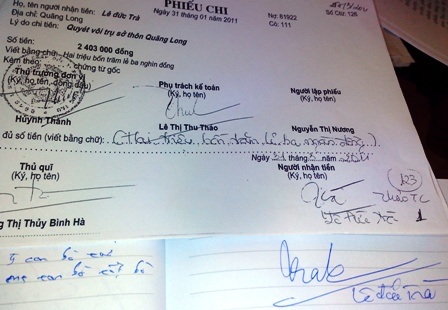 PHIẾU CHI
Họ, tên người nhận tiền: Lê đức Trà
Ngày 31 tháng 01 năm 2011
Nợ: 81922
Số Ctừ: 126
Địa chỉ: Quãng Long
Có: 111
Lý do chi tiền: Quyết với trụ sở thôn Quãng Long
Số tiền: 2 403 000 đồng
Viết bằng chữ: Hai triệu bốn trăm lẻ ba nghìn đồng
Kèm theo: chứng từ gốc
Thủ trưởng đơn vị
(Ký, họ tên, đóng dấu)
Phụ trách kế toán
(Ký, họ tên)
Người lập phiếu
(Ký, họ tên)
Huỳnh Thành
Lê Thị Thu Thảo
Nguyễn Thị Nương
đủ số tiền (viết bằng chữ): (Hai triệu bốn trăm lẻ ba ngàn đồng)
Ngày 31 tháng năm
Thủ quĩ
(Ký, họ tên)
Người nhận tiền
(Ký, họ tên)
123
Trà
Lê đức Trà
1
g Thị Thùy Bình Hà
Lê đức Trà